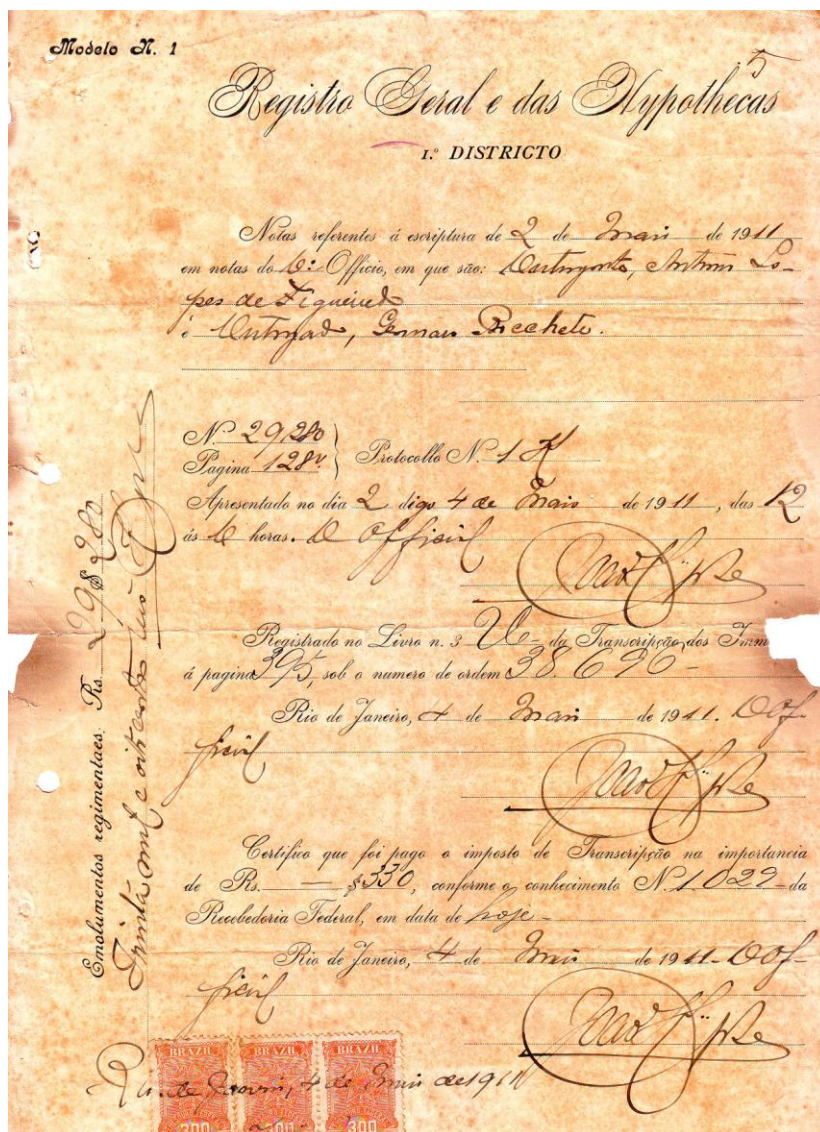 Modelo N. 1
5
Registro Geral e das Hypothecas
1.º DISTRICTO
Notas referentes á escriptura de 2 de Maio de 1911
em notas do 6º Officio, em que são: Outorgante, Antonio Lo-
pes de Figueiredo
é Outorgado, Genaro
N. 29,280
Pagina 128v. Protocollo N. 1
Apresentado no dia 2 digo 4 de Maio de 1911, das 12
ás 6 horas. O Official
Registrado no Livro n. 3 da Transcripção dos Imm
á pagina 395, sob o numero de ordem 38.690-
Rio de Janeiro, 4 de Maio de 1911. O Of-
ficial
Certifico que foi pago o imposto de Transcripção na importancia
de Rs. — $330, conforme o conhecimento N. 1029 - da
Recebedoria Federal, em data de hoje -
Rio de Janeiro, 4 de Maio de 1911 - O Of-
ficial
Emolumentos regimentaes: Rs.
Trinta mil e oitocentos reis
BRAZIL BRAZIL BRAZIL
Rio de Janeiro, 4 de Maio de 1911
300 300 300